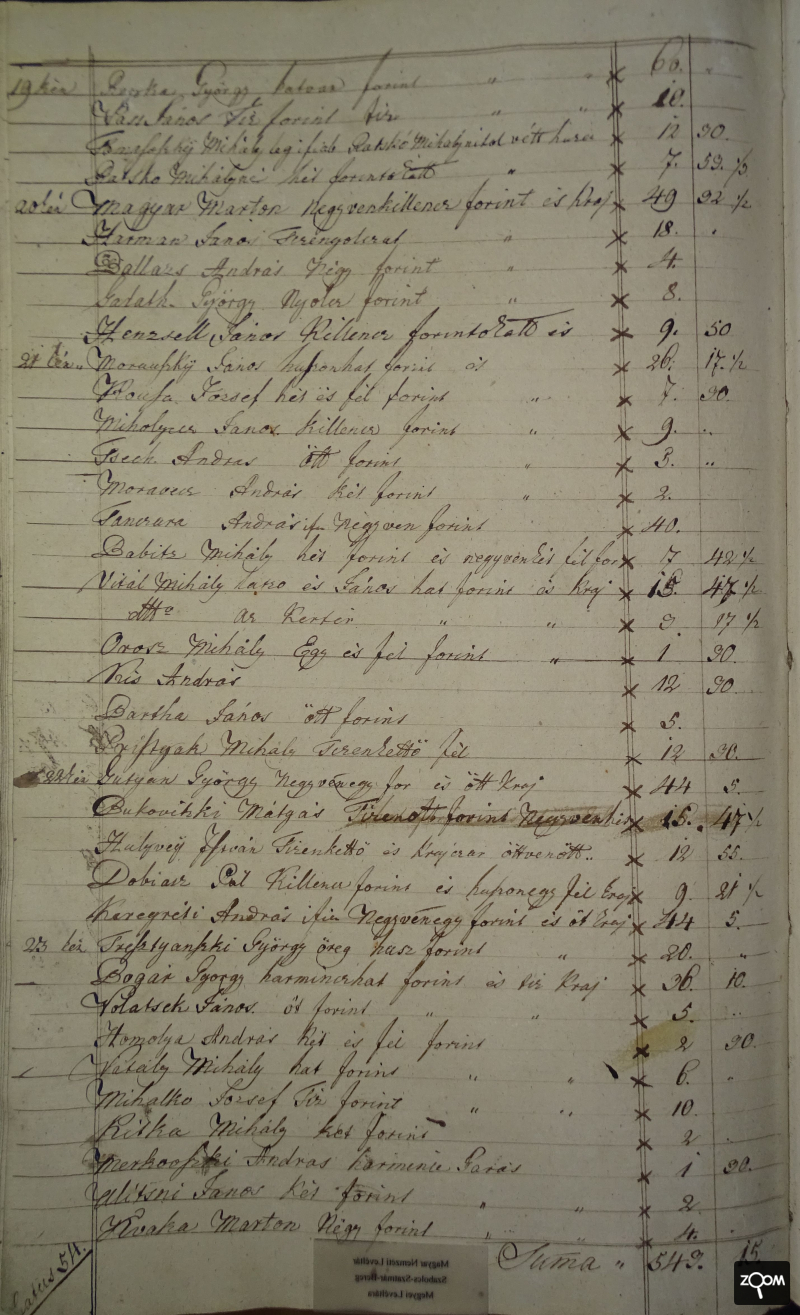 19 kén Retska György hatvan forint " " × 60. "
Vass János Tíz forint tíz " " × 10.
Mihály legifiab Ratskó Mihálynitol vétt × 12 30.
Ratsko Mihályni hét forintokatt " × 7. 53. ½
20 kén Magyar Marton Negyvenkillencz forint és Kraj × 49 32 ½
Harman János " × 18. "
Ballazs András Négy forint " × 4.
Galath György Nyolcz forint " × 8.
Henzsell János Killencz forintokatt és × 9. 50
21 kén " János huszonhat forint és × 26. 17. ½
József hét és fél forint " × 7. 30.
Miholyzer János Killencz forint " × 9. "
Tsech Andras ött forint " × 5. "
Moravecz András két forint " × 2.
Tanczura András if. Negyven forint × 40.
Babits Mihály hét forint és negyvenkét fél for × 7 42 ½
Vitál Mihály és János hat forint és Kraj × 47 ½
dtto az Kertér " " × 3. 17 ½
Orosz Mihály Egy és fél forint " × 1 30.
Kis András × 12 30
Bartha János ött forint × 5.
Mihály Tizenkettö fél × 12 30.
22 kén Gutyan György Negyvénegy for és ött Kraj × 44 5.
Bukovitzki Mátyás Tizenött forint Negyvenhét × 15. 47 ½
Hulyvej István Tizenkettö és Krajczar öttvenött " × 12 55.
Dobiasz Pál Killencz forint és huszonegy fél kraj × 9 21 ½
András ifiu Negyvénegy forint és öt kraj × 44 5.
23 kén György öreg husz forint " × 20. "
Bogár György harminczhat forint és tíz Kraj × 36. 10.
Volatsek János öt forint " " × 5. "
Homolya András Két és fél forint × 2 30.
Vatály Mihály hat forint " " × 6. "
Mihalko József Tíz forint " " × 10.
Ritka Mihály két forint × 2 "
Andras harmincz Garas × 1 30.
János Két forint " " × 2
Kvaka Marton Négy forint " " × 4. "
Latus 54. Suma " 543. 15
Magyar Nemzeti Levéltár
Szabolcs-Szatmár-Bereg
Megyei Levéltára
ZOOM